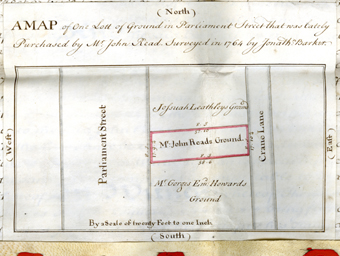 (North)
A MAP of One Lott of Ground in Parliament Street that was lately
Purchased by Mr. John Read. Surveyed in 1764 by Jonath. Barker
(West)
Parliament Street
Josuah Leathleys Ground
Mr. John Reads Ground.
Mr. Gorges Em. Howards
Ground
Crane Lane
(East)
By a Scale of twenty Feet to one Inch
(South)